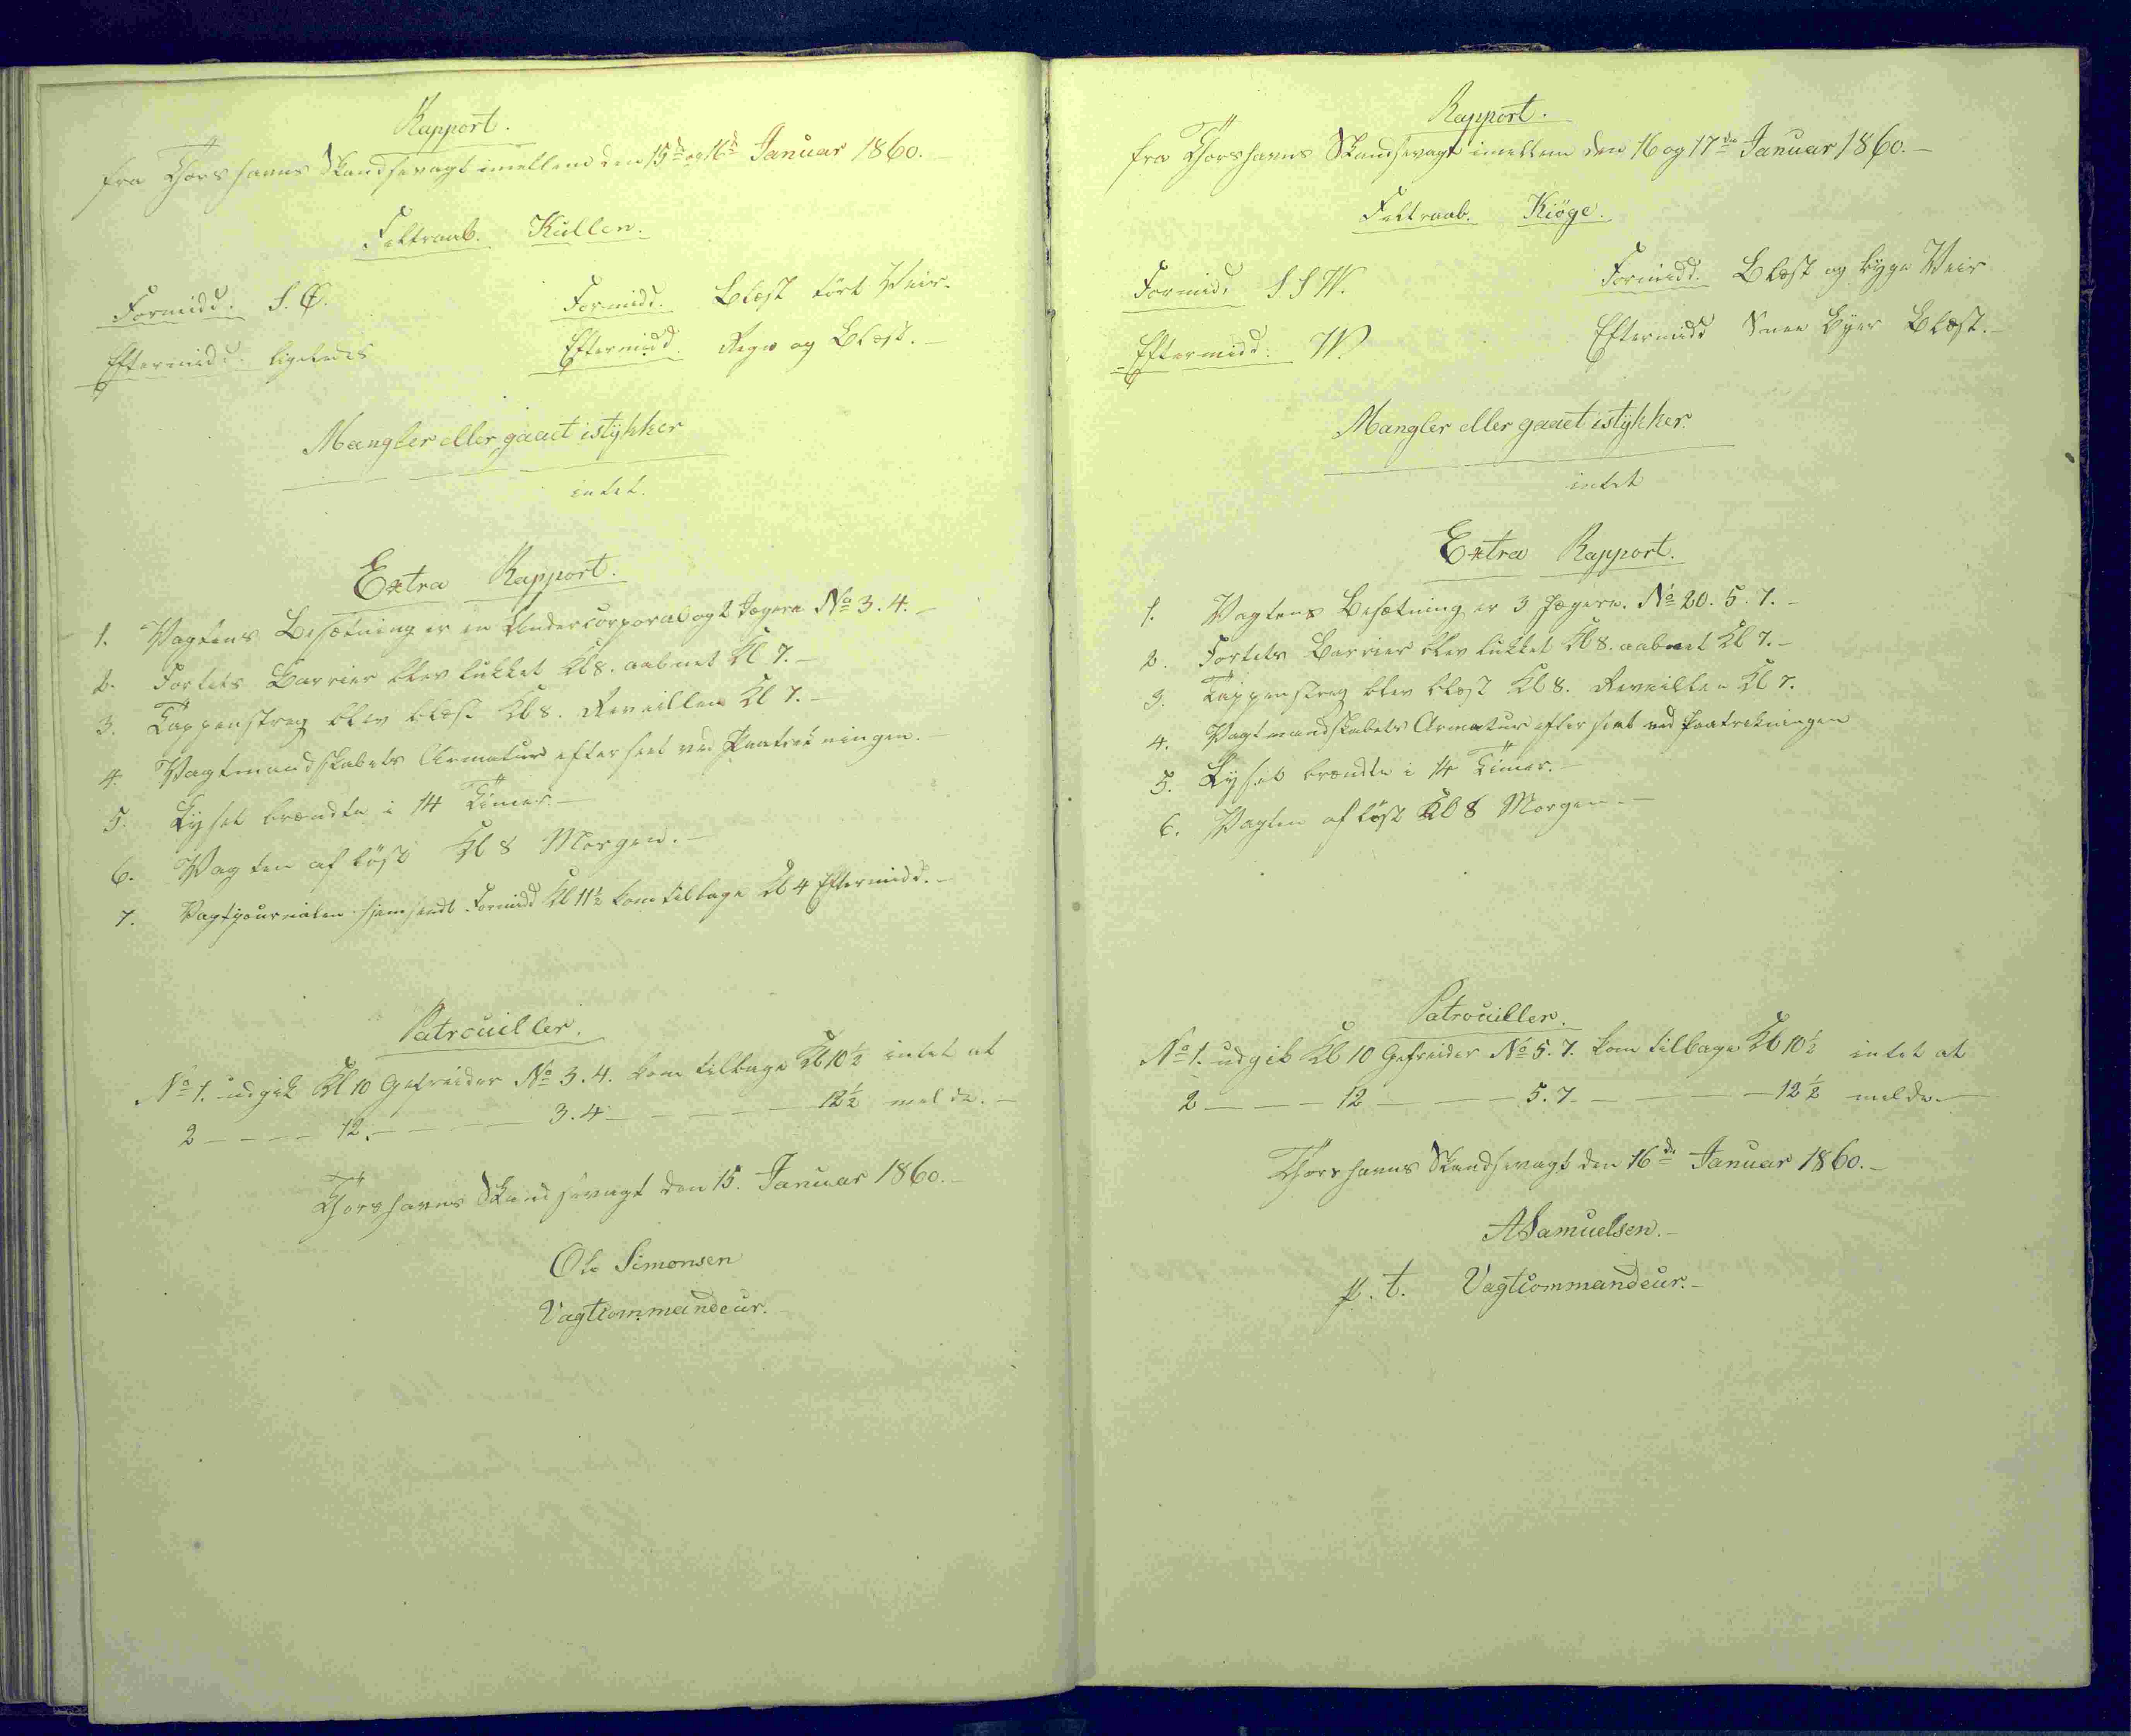 Rapport.
fra Thorshavns Skandsevagt imellem den 15de og 16de Januar 1860.
Feltraab. Kullen.
Formidd. S.Ø. Formidd. Blæst tört Veir.
Eftermidd. ligeledes Eftermidd. Regn og Blæst.
Mangler eller gaaet istykker
intet.
Extra Rapport.
1. Vagtens Besætning er en Undercorporal og 2 Jægere No 3. 4.
2. Fortets Barrier blev lukket Kl 8. aabnet Kl 7.
3. Tappenstreg blev blæst Kl 8. Reveillen Kl 7.
4. Vagtmandskabets Armatur efterseet ved Paatrækningen.
5. Lyset brændte i 14 Timer.
6. Vagten aflöst Kl 8 Morgen.
7. Vagtjournalen hjemsendt Formidd Kl 11½ kom tilbage Kl 4 Eftermidd.
Patrouiller.
No 1. udgik Kl 10 Gefreider No 3. 4. kom tilbage Kl 10½ intet at
2 - - - 12. - - - 3. 4 - - - - 12½ melde.
Thorshavns Skandsevagt den 15. Januar 1860.
Ole Simonsen
Vagtcommandeur.
Rapport.
fra Thorshavns Skandsevagt imellem den 16 og 17de Januar 1860.
Feltraab. Kiöge.
Formid. SSW. Formidd. Blæst og byge Veir
Eftermidd. W. Eftermidd Snee Byer Blæst.
Mangler eller gaaet istykker.
intet
Extra Rapport.
1. Vagtens Besætning er 3 Jægere. No 20. 5. 7.
2. Fortets Barrier blev lukket Kl 8. aabnet Kl 7.
3. Tappenstreg blev blæst Kl 8. Reveillen Kl 7.
4. Vagtmandskabets Armatur efterseet ved Paatrækningen
5. Lyset brændte i 14 Timer.
6. Vagten aflöst Kl 8 Morgen.
Patrouiller.
No 1. udgik Kl 10 Gefreider No 5. 7. kom tilbage Kl 10½ intet at
2 - - - 12 - - - 5. 7. - - - 12½ melde.
Thorshavns Skandsevagt den 16de Januar 1860.
A Samuelsen.
p. t. Vagtcommandeur.